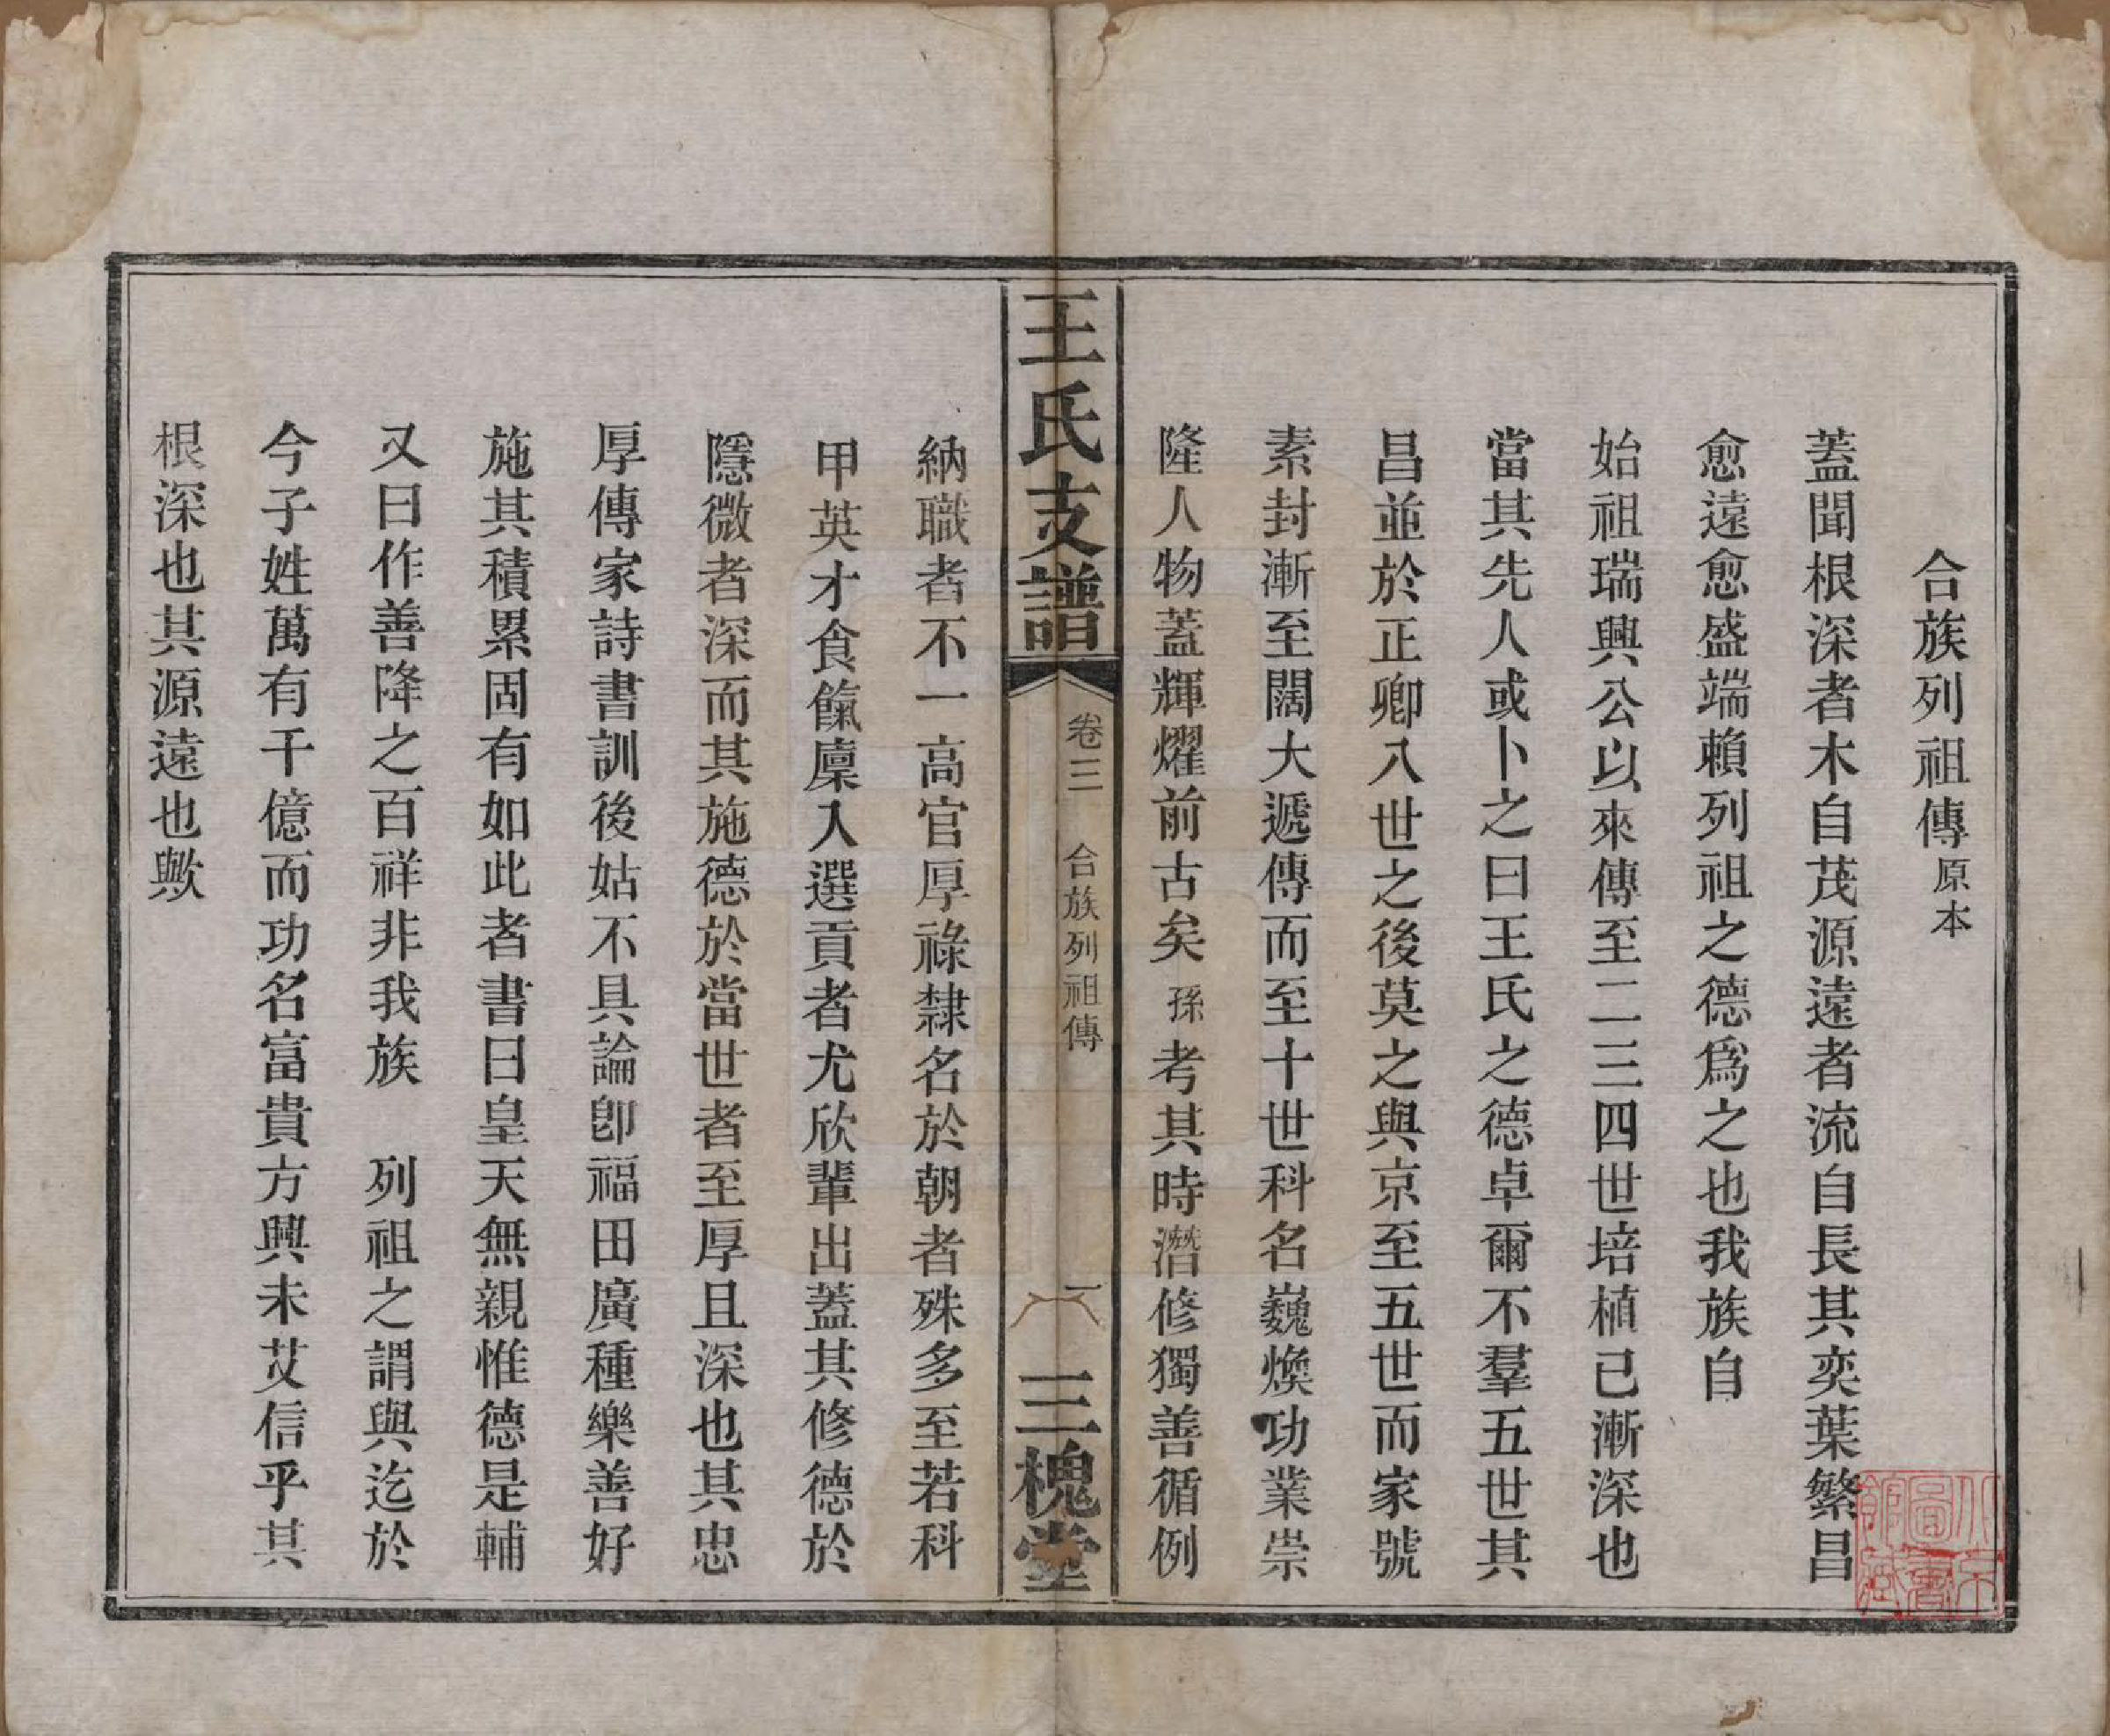 合族列祖傳原本
蓋聞根深者木自茂源遠者流自長其奕葉繁昌
愈遠愈盛端賴列祖之德爲之也我族自
始祖瑞興公以來傳至二三四世培植已漸深也
當其先人或卜之曰王氏之德卓爾不羣五世其
昌並於正卿八世之後莫之與京至五世而家號
素封漸至闊大遞傳而至十世科名巍煥功業崇
隆人物蓋輝燿前古矣孫考其時潛修獨善循例
王氏支譜
卷三
合族列祖傳
一
三槐堂
納職者不一高官厚祿隸名於朝者殊多至若科
甲英才食餼廩入選貢者尤欣輩出蓋其修德於
隱微者深而其施德於當世者至厚且深也其忠
厚傳家詩書訓後姑不具論卽福田廣種樂善好
施其積累固有如此者書曰皇天無親惟德是輔
又曰作善降之百祥非我族 列祖之謂與迄於
今子姓萬有千億而功名富貴方興未艾信乎其
根深也其源遠也歟